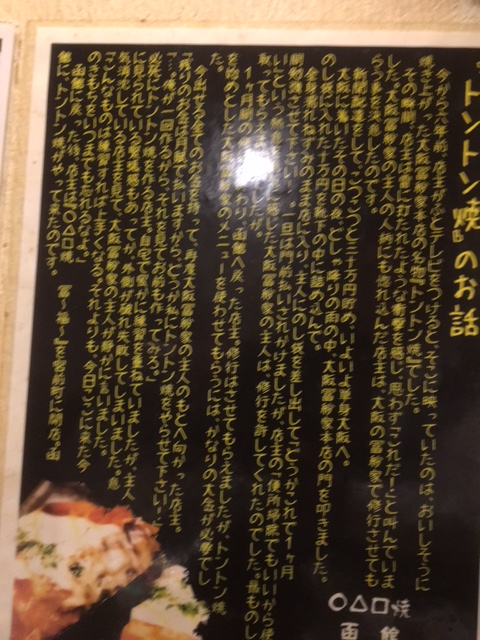 トントン焼』のお話
今から六年前、店主がふとテレビをつけると、そこに映っていたのは、おいしそうに
焼き上がった大阪冨紗家本店の名物『トントン焼』でした。
その瞬間、店主は雷に打たれたような衝撃を感じ、思わず「これだー!」と叫んでいま
した。大阪冨紗家の主人の人柄にも惚れ込んだ店主は、大阪の冨紗家で修行させても
らう事を決意したのです。
新聞配達をして、こつこつと三十万円貯め、いよいよ単身大阪へ。
大阪に着いたその日の夜、どしゃ降りの雨の中、大阪冨紗家本店の門を叩きました。
のし袋に入れた三十万円を靴下の中に詰め込んで。
全身濡れねずみのまま店に入り、主人にのし袋を差し出して「どうかこれで1ヶ月
間勉強させて下さい!」一旦は門前払いされかけましたが、店主の「便所掃除でもいいから使
を感じた大阪冨紗家の主人は、修行を許してくれたのでした。
わり、函館へ戻った店主。修行はさせてもらえましたが、トントン焼
を始めとした大阪冨紗家のメニューを使わせてもらうには、かなりの大金が必要でし
た。
今出せる全てのお金を持って、再度大阪冨紗家の主人のもとへ向かった店主。
「残りのお金は月賦で払いますから、どうか私にトントン焼をやらせて下さい!」
「…俺が一回作るから、それを見てお前も作ってみろ。」
必死にトントン焼を作る店主。自宅で密かに練習を重ねていましたが、主人
に見られている緊張感もあってか、外側が破れ失敗してしまいました。意
気消沈している店主を見て、大阪冨紗家の主人が静かに言いました。
「こんなものは練習すれば上手くなる。それよりも、今日ここに来た今
のきもちをいつまでも忘れるなよ。」
函館に戻った後、店主は○△□焼 冨〜福〜』を宮前町に開店。函
館に、トントン焼がやって来たのです。
○△□焼